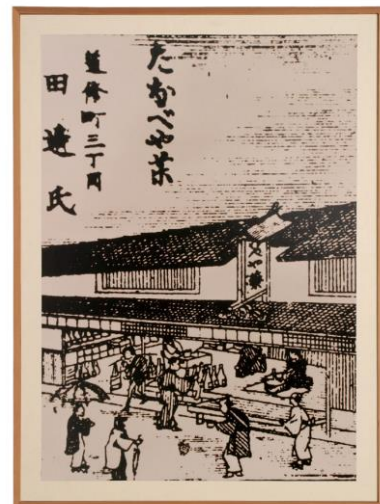 たなべや薬
道修町三丁目
田邊氏